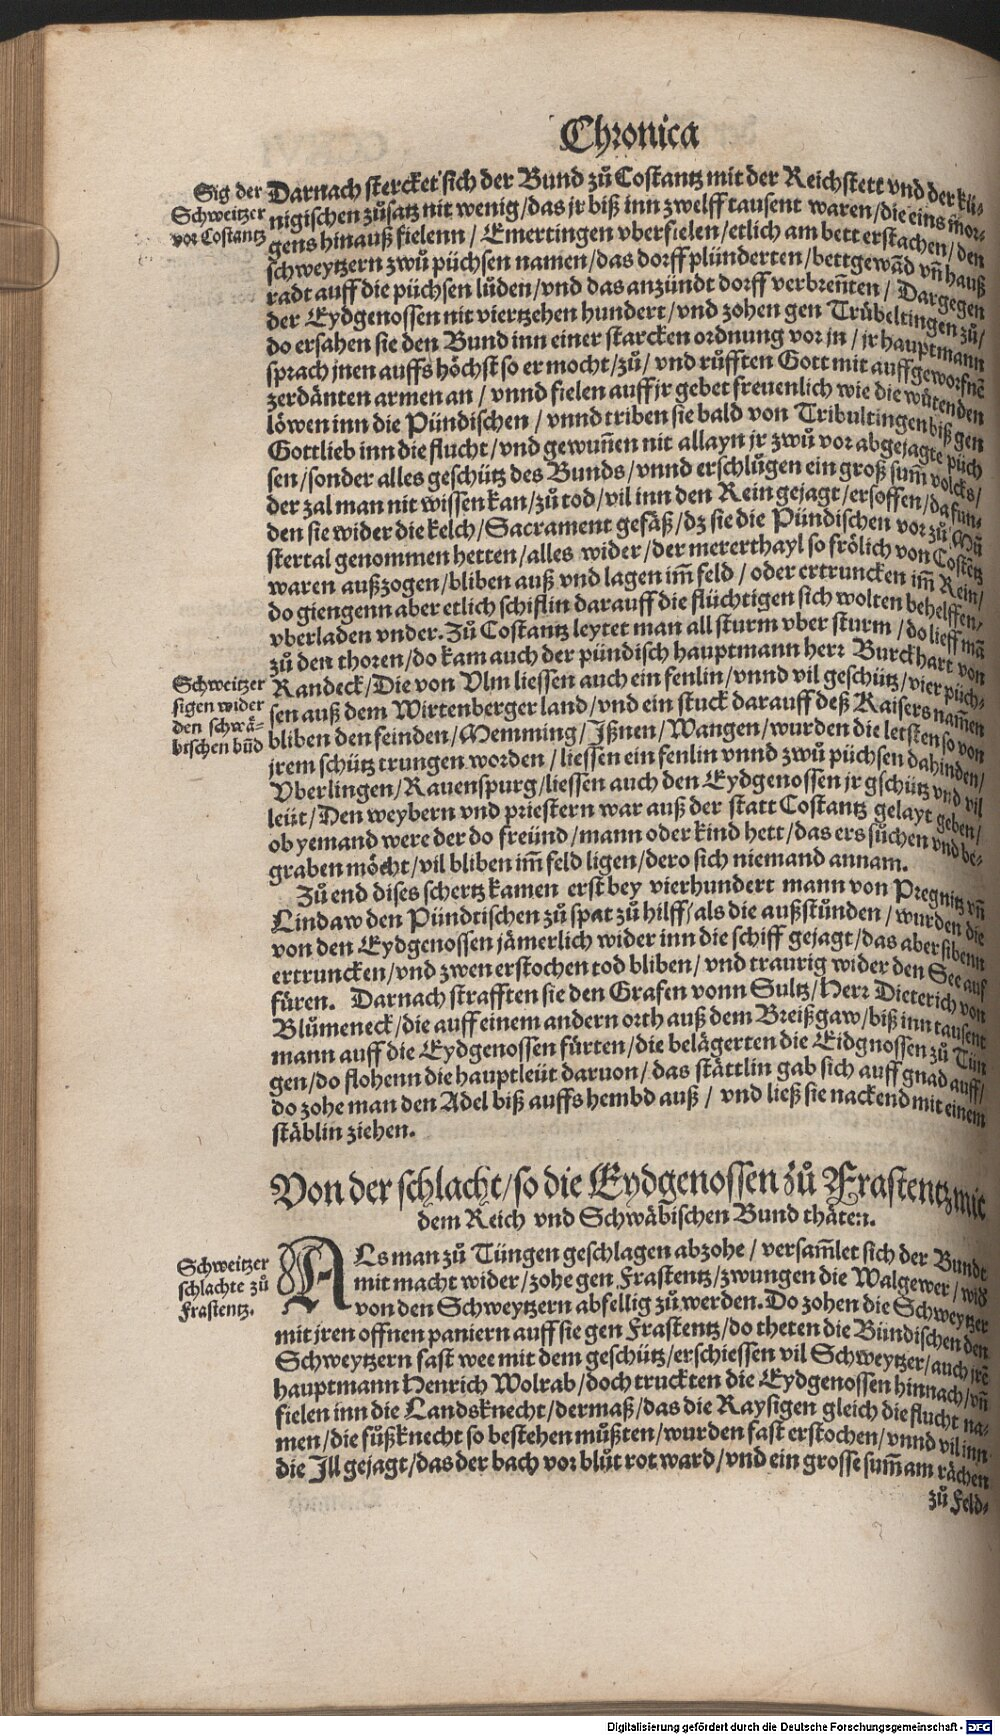 Chronica
Sig der
Schweitzer
vor Costantz
Darnach stercket sich der Bund zů Costantz mit der Reichstett vnd der kü-
nigischen zůsatz nit wenig/das jr biß inn zwelff tausent waren/die eins mor-
gens hinauß fielenn/ Emertingen vberfielen/etlich am bett erstachen/den
schweytzern zwů püchsen namen/das dorff plünderten/bettgewãd vñ hauß
radt auff die püchsen lůden/vnd das anzündt dorff verbreñten/ Dargegen
der Eydgenossen nit viertzehen hundert/vnd zohen gen Trübeltingen zů/
do ersahen sie den Bund inn einer starcken ordnung vor jn/jr hauptmann
sprach jnen auffs höchst so er mocht/zů/vnd růfften Gott mit auffgeworfnẽ
zerdänten armen an/vnnd fielen auff jr gebet freuenlich wie die wůtenden
löwen inn die Pündischen/vnnd triben sie bald von Tribultingen biß gen
Gottlieb inn die flucht/vnd gewuñen nit allayn jr zwů vor abgejagte püch
sen/sonder alles geschütz des Bunds/vnnd erschlůgen ein groß sum̃ volcks/
der zal man nit wissen kan/zů tod/vil inn den Rein gejagt/ersoffen/da fun-
den sie wider die kelch/Sacrament gefäß/dz sie die Pündischen vor zů Mů
stertal genommen hetten/alles wider/der mererthayl so frölich von Costẽtz
waren außzogen/bliben auß vnd lagen im̃ feld/oder ertruncken im̃ Rein/
do giengenn aber etlich schiflin darauff die flüchtigen sich wolten behelffen/
vberladen vnder. Zů Costantz leytet man all sturm vber sturm/do lieff mã
zů den thoren/do kam auch der pündisch hauptmann herr Burckhart von
Randeck/Die von Vlm liessen auch ein fenlin/vnnd vil geschütz/vier püch-
sen auß dem Wirtenberger land/vnd ein stuck darauff deß Kaisers nam̃en
bliben den feinden/Memming/Ißnen/Wangen/wurden die letsten so von
jrem schütz trungen worden/liessen ein fenlin vnnd zwů püchsen dahinden/
Vberlingen/Rauenspurg/liessen auch den Eydgenossen jr gschütz vnd vil
leüt/Den weybern vnd priestern war auß der statt Costantz gelayt geben/
ob yemand were der do freünd/mann oder kind hett/das ers sůchen vnd be-
graben möcht/vil bliben im̃ feld ligen/dero sich niemand annam.
Schweitzer
sigen wider
den schwä-
bischen bũd
Zů end dises schertz kamen erst bey vierhundert mann von Pregnitz vñ
Lindaw den Pündtischen zů spat zů hilff/als die außstůnden/wurden die
von den Eydgenossen jämerlich wider inn die schiff gejagt/das aber sibenn
ertruncken/vnd zwen erstochen tod bliben/vnd traurig wider den See auf
füren. Darnach strafften sie den Grafen vonn Sultz/Herr Dieterich von
Blůmeneck/die auff einem andern orth auß dem Breißgaw/biß inn tausent
mann auff die Eydgenossen fürten/die belägerten die Eidgnossen zů Tün
gen/do flohenn die hauptleüt daruon/das stättlin gab sich auff gnad auff/
do zohe man den Adel biß auffs hembd auß/ vnd ließ sie nackend mit einem
stäblin ziehen.
Von der schlacht/so die Eydgenossen zů Frastentz mit
dem Reich vnd Schwäbischen Bund thäten.
Schweitzer
schlachte zů
Frastentz.
ALs man zů Tüngen geschlagen abzohe/ versam̃let sich der Bundt
mit macht wider/zohe gen Frastentz/zwungen die Walgewer/wid
von den Schweytzern abfellig zů werden. Do zohen die Schweytzer
mit jren offnen paniern auff sie gen Frastentz/do theten die Bündischen den
Schweytzern fast wee mit dem geschütz/erschiessen vil Schweytzer/auch jrẽ
hauptmann Henrich Wolrab/doch truckten die Eydgenossen hinnach/vñ
fielen inn die Landsknecht/dermaß/das die Raysigen gleich die flucht na-
men/die fůßknecht so bestehen můßten/wurden fast erstochen/vnnd vil inn
die Jll gejagt/das der bach vor blůt rot ward/vnd ein grosse sum̃ am rächen
zů Feld-
Digitalisierung gefördert durch die Deutsche Forschungsgemeinschaft - DFG